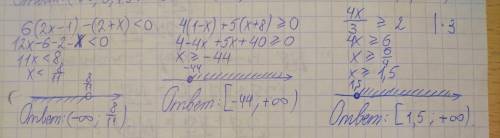 6(2x-1)-(2+x)<0
12x-6-2-x<0
11x<8
x<8/11
8/11
Ответ: (-∞; 8/11)
4(1-x)+5(x+8)≥0
4-4x+5x+40≥0
x≥-44
-44
Ответ: [-44, +∞)
4x/3 ≥ 2 |·3
4x≥6
x≥6/4
x≥1,5
1,5
Ответ: [1,5, +∞)